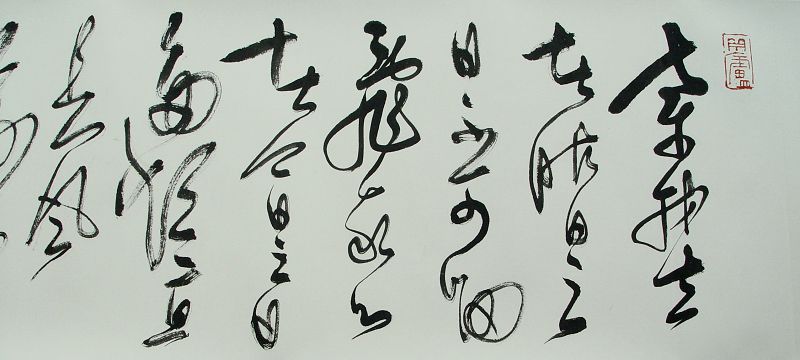 棄我去
者昨日之
日不可留
亂我心
者今日之日
多煩憂
長風